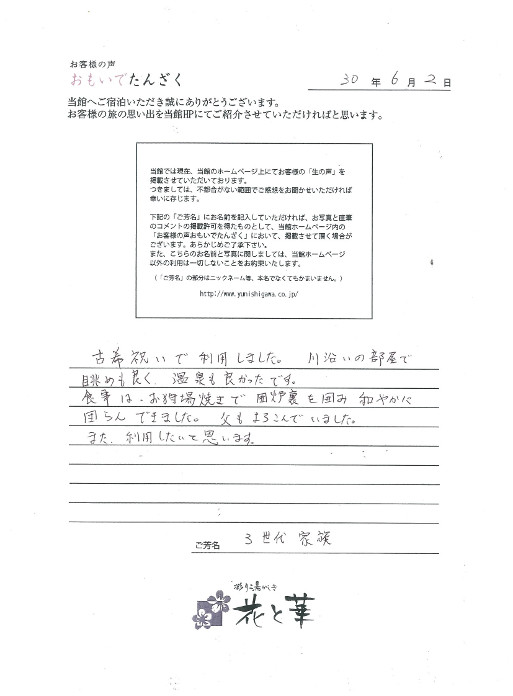 お客様の声
おもいでたんざく
30 年 6 月 2 日
当館へご宿泊いただき誠にありがとうございます。
お客様の旅の思い出を当館HPにてご紹介させていただければと思います。
当館では現在、当館のホームページ上にてお客様の「生の声」を
掲載させていただいております。
つきましては、不都合がない範囲でご感想をお聞かせいただければ
幸いに存じます。
下記の「ご芳名」にお名前を記入していただければ、お写真と直筆
のコメントの掲載許可を得たものとして、当館ホームページ内の
「お客様の声おもいでたんざく」において、掲載させて頂く場合が
ございます。あらかじめご了承下さい。
また、こちらのお名前と写真に関しましては、当館ホームページ
以外の利用は一切しないことをお約束いたします。
（「ご芳名」の部分はニックネーム等、本名でなくてもかまいません。）
http://www.yunishigawa.co.jp/
古希祝いで利用しました。 川沿いの部屋で
眺めも良く、温泉も良かったです。
食事は、お狩場焼きで囲炉裏を囲み和やかに
団らんできました。 父もよろこんでいました。
また、利用したいと思います。
ご芳名 3世代家族
花と華